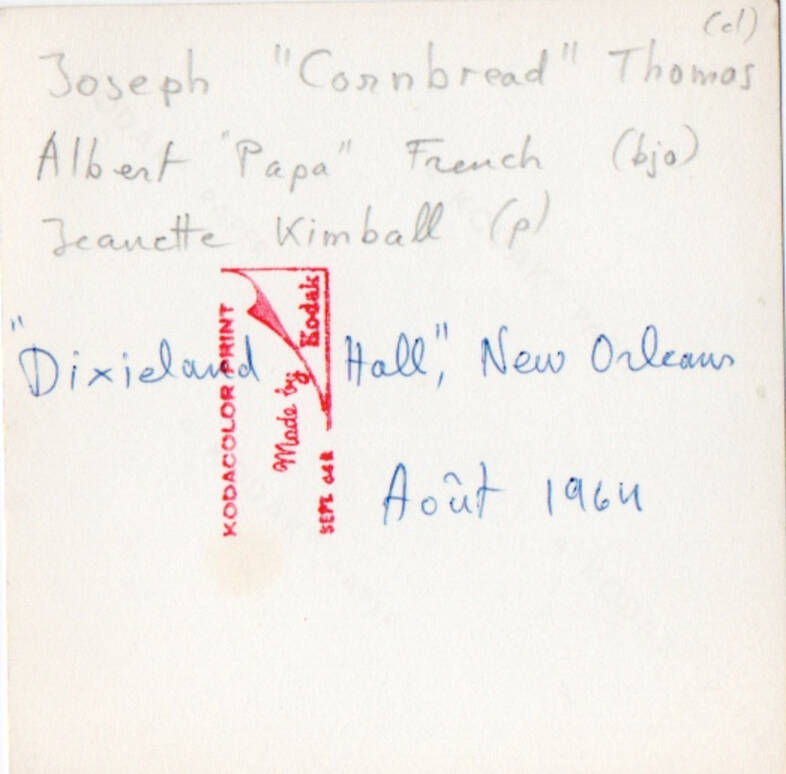 (cl)
Joseph "Cornbread" Thomas
Albert "Papa" French (bjo)
Jeanette Kimball (p)
"Dixieland Hall", New Orleans
Août 1964
KODACOLOR PRINT
Made by Kodak
SEPT. 64